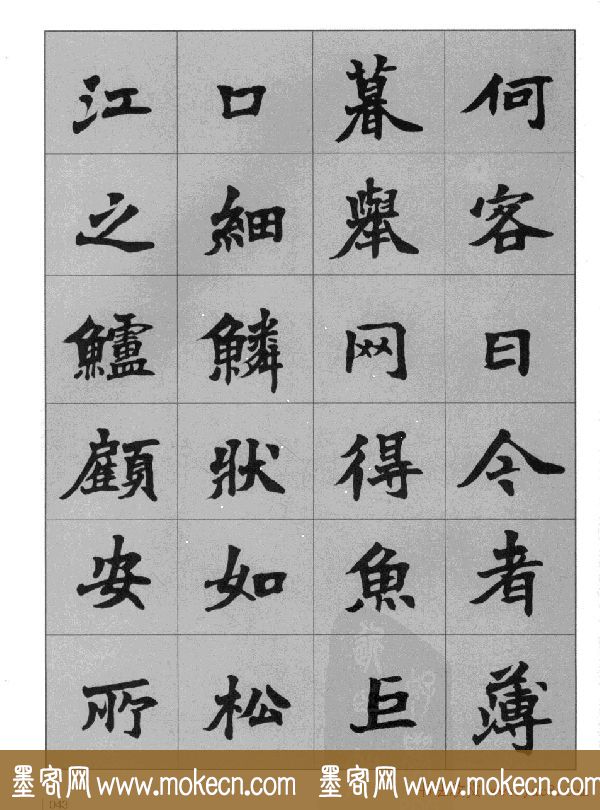 何客日今者薄
暮舉网得魚巨
口細鱗狀如松
江之鱸顧安所
墨客网 www.mokecn.com 墨客网 www.mokecn.com
043